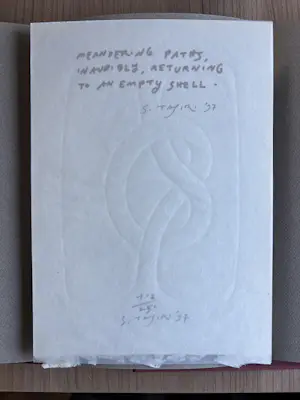 MEANDERING PATHS,
INAUDIBLY, RETURNING
TO AN EMPTY SHELL.
S. TAJIRI '97
S. TAJIRI '97